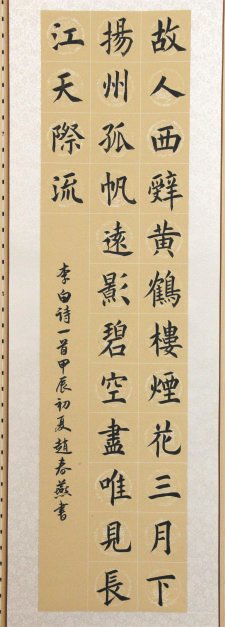 故人西辤黄鶴樓煙花三月下
揚州孤帆遠影碧空盡唯見長
江天際流
李白诗一首甲辰初夏趙春燕書